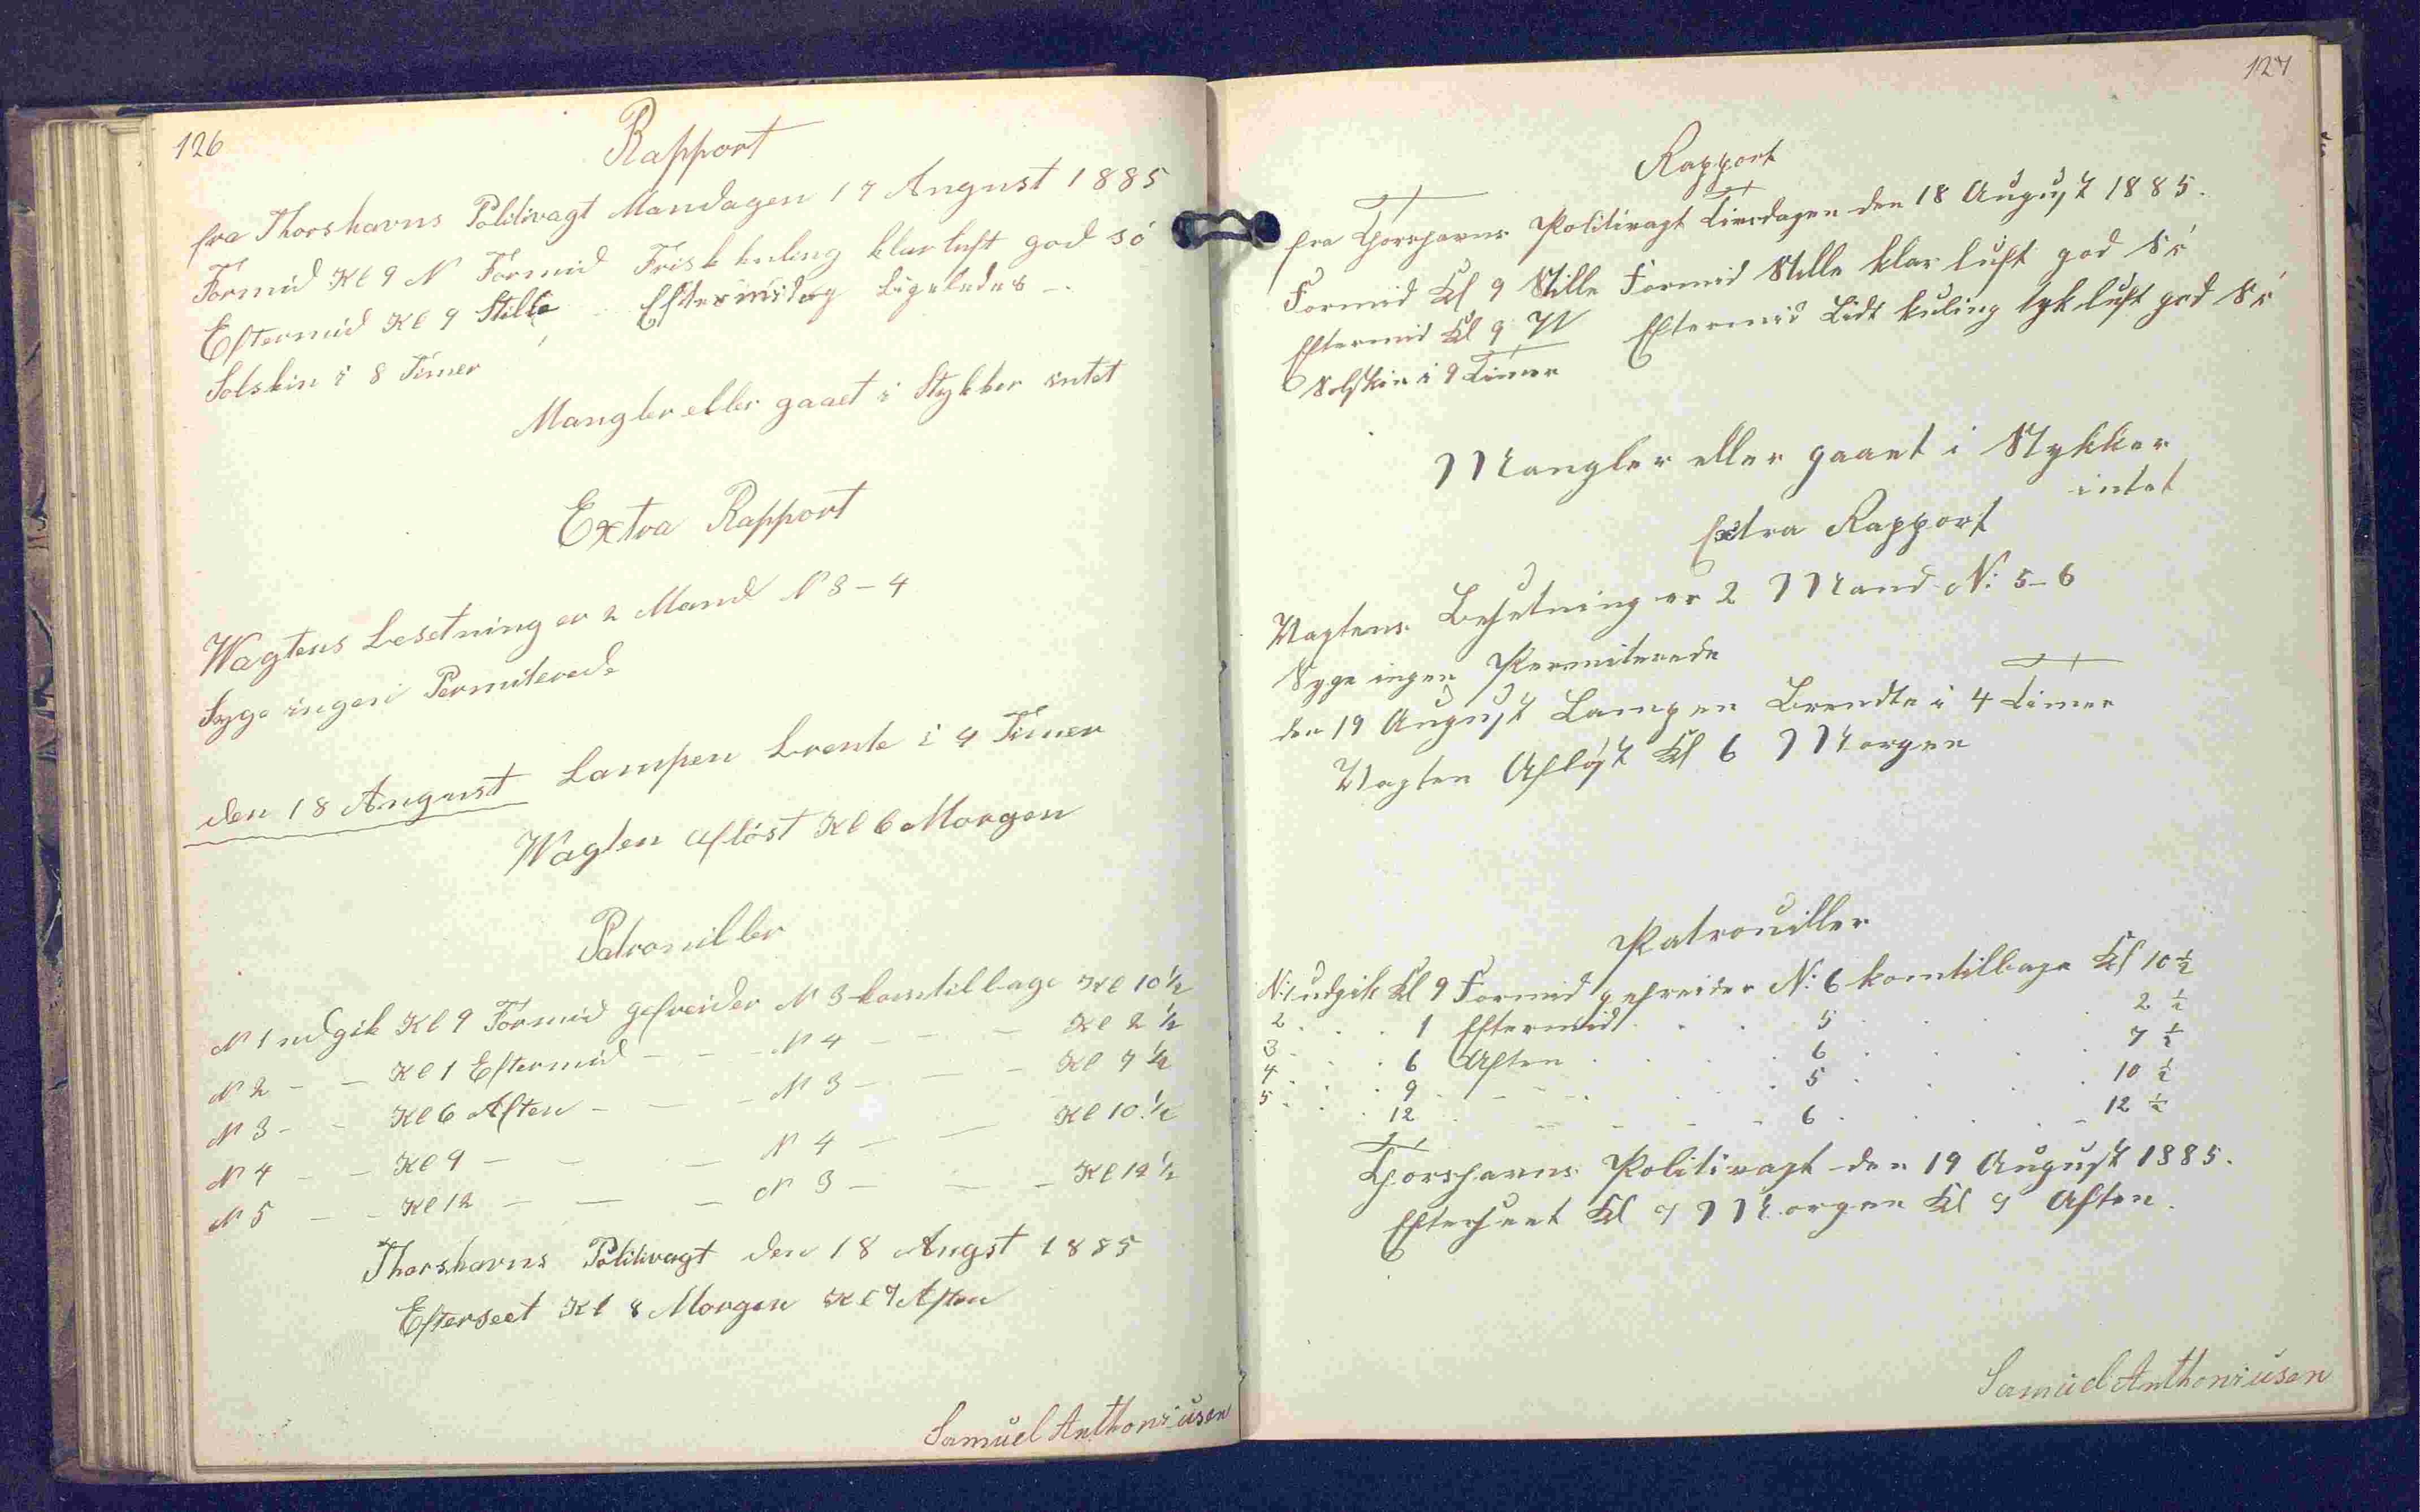 126
Rapport
fra Thorshavns Politivagt Mandagen 17 August 1885
Formid Kl 9 N Formid Frisk kuling klar luft god só
Eftermid Kl 9 Stille Eftermidag Ligeledes –.
Solskin i 8 Timer
Mangler eller gaaet i Stykker intet
Extra Rapport
Wagtens Besetning er 2 Mand N 3 – 4
Syge ingen Permiterede
den 18 August Lampen brente i 4 Timer
Wagten Aflóst Kl 6 Morgen
Patrouiller
N 1 udgik Kl 9 Formid gefreider N 3 komtilbage Kl 10 ½
N 2 – – Kl 1 Eftermid – – – N 4 – – – Kl 2 ½
N 3 – – Kl 6 Aften – – – N 3 – – – Kl 7 ½
N 4 – – Kl 9 – – – N 4 – – Kl 10 ½
N 5 – – Kl 12 – – – N 3 – – – Kl 12 ½
Thorshavns Politivagt den 18 Augst 1885
Efterseet Kl 8 Morgen Kl 7 Aften
Samuel Anthoniusen
127
Rapport
fra Thorshavns Politivagt Tirsdagen den 18 August 1885.
Formid Kl 9 Stille Formid Stille klar luft god Só
Eftermid Kl 9 N Eftermid Lidt kuling tyk luft god Só
Solskin i 9 Timer
Mangler eller gaaet i Stykker
intet
Extra Rapport
Vagtens Besetning er 2 Mand N: 5–6
Syge ingen Permiterede
den 19 August Lampen Brendte i 4 Timer
Vagten Aflóst Kl 6 Morgen
Patrouiller
N: 1 udgik Kl 9 Formid gefreider N: 6 komtilbage Kl 10 ½
2 . . . 1 Eftermid . . . 5 . . . 2 ½
3 . . . 6 Aften . . . 6 . . . 7 ½
4 . . . 9 . – – . . 5 . . . 10 ½
5 . . . 12 . – – – – 6 . . . – 12 ½
Thorshavns Politivagt den 19 August 1885.
Efterseet Kl 7 Morgen Kl 9 Aften.
Samuel Anthoniusen